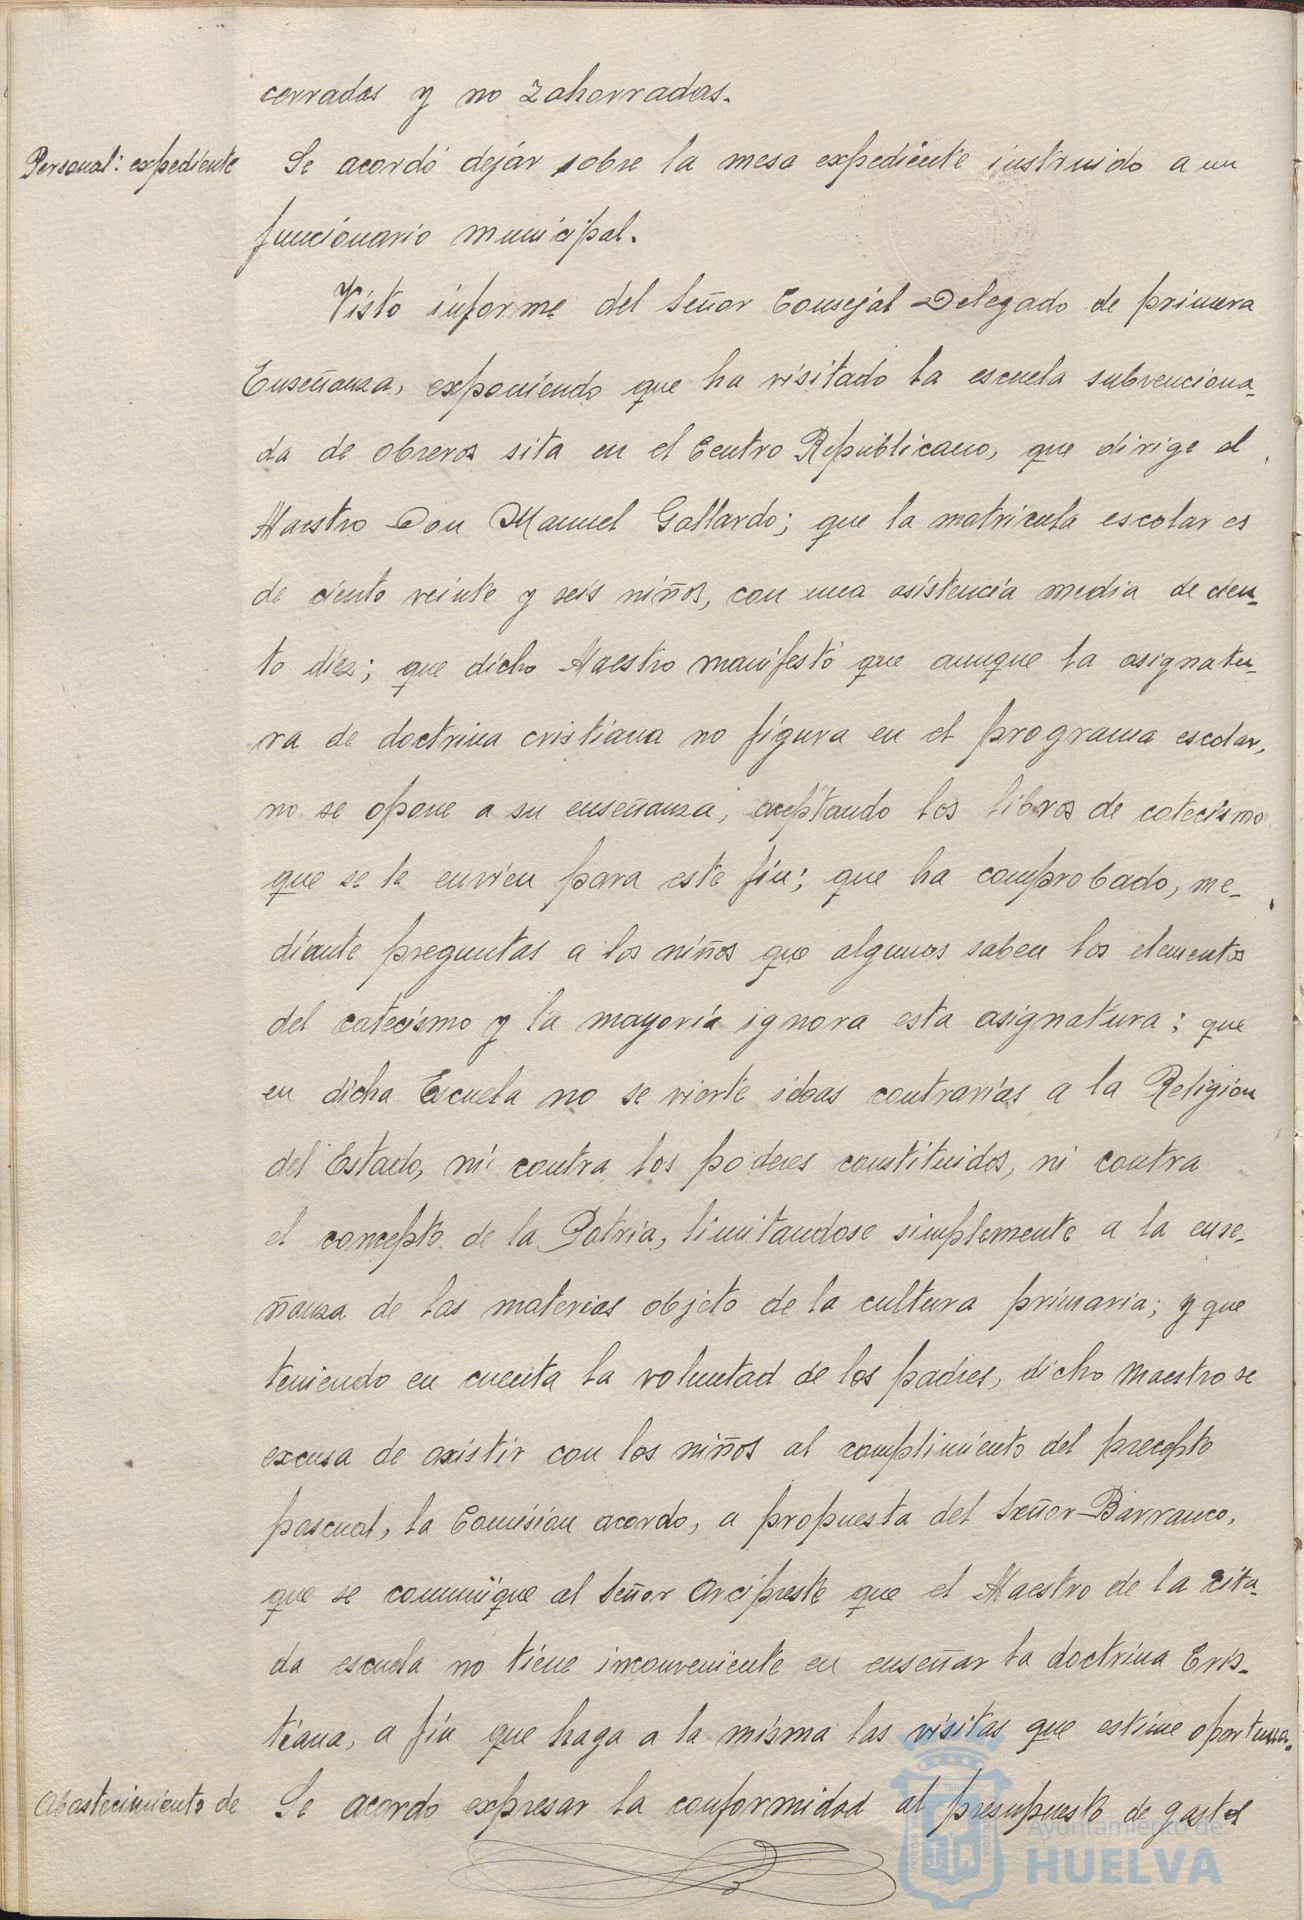 cerradas y no zahorradas.
Personal: expediente Se acordó dejar sobre la mesa expediente instruido a un
funcionario municipal.
Visto informe del Señor Consejal Delegado de primera
Enseñanza, exponiendo que ha visitado la escuela subvenciona-
da de obreros sita en el Centro Republicano, que dirige el
Maestro Don Manuel Gallardo; que la matricula escolar es
de ciento veinte y seis niños, con una asistencia media de cien-
to diez; que dicho Maestro manifestó que aunque la asignatu-
ra de doctrina cristiana no figura en el programa escolar,
no se opone a su enseñanza, aceptando los libros de catecismo
que se le envien para este fin; que ha comprobado, me-
diante preguntas a los niños que algunos saben los elementos
del catecismo y la mayoría ignora esta asignatura; que
en dicha Escuela no se vierte ideas contrarias a la Religion
del Estado, ni contra los poderes constituidos, ni contra
el concepto de la Patria, limitandose simplemente a la ense-
ñanza de las materias objeto de la cultura primaria; y que
teniendo en cuenta la voluntad de los padres, dicho Maestro se
excusa de asistir con los niños al complimiento del precepto
pascual, la Comision acordo, a propuesta del Señor Barranco,
que se comunique al Señor Arcipreste que el Maestro de la cita-
da escuela no tiene inconveniente en enseñar la doctrina Cris-
tiana, a fin que haga a la misma las visitas que estime oportuna.
Abastecimiento de Se acordo expresar la conformidad al presupuesto de gastos
Ayuntamiento de
HUELVA